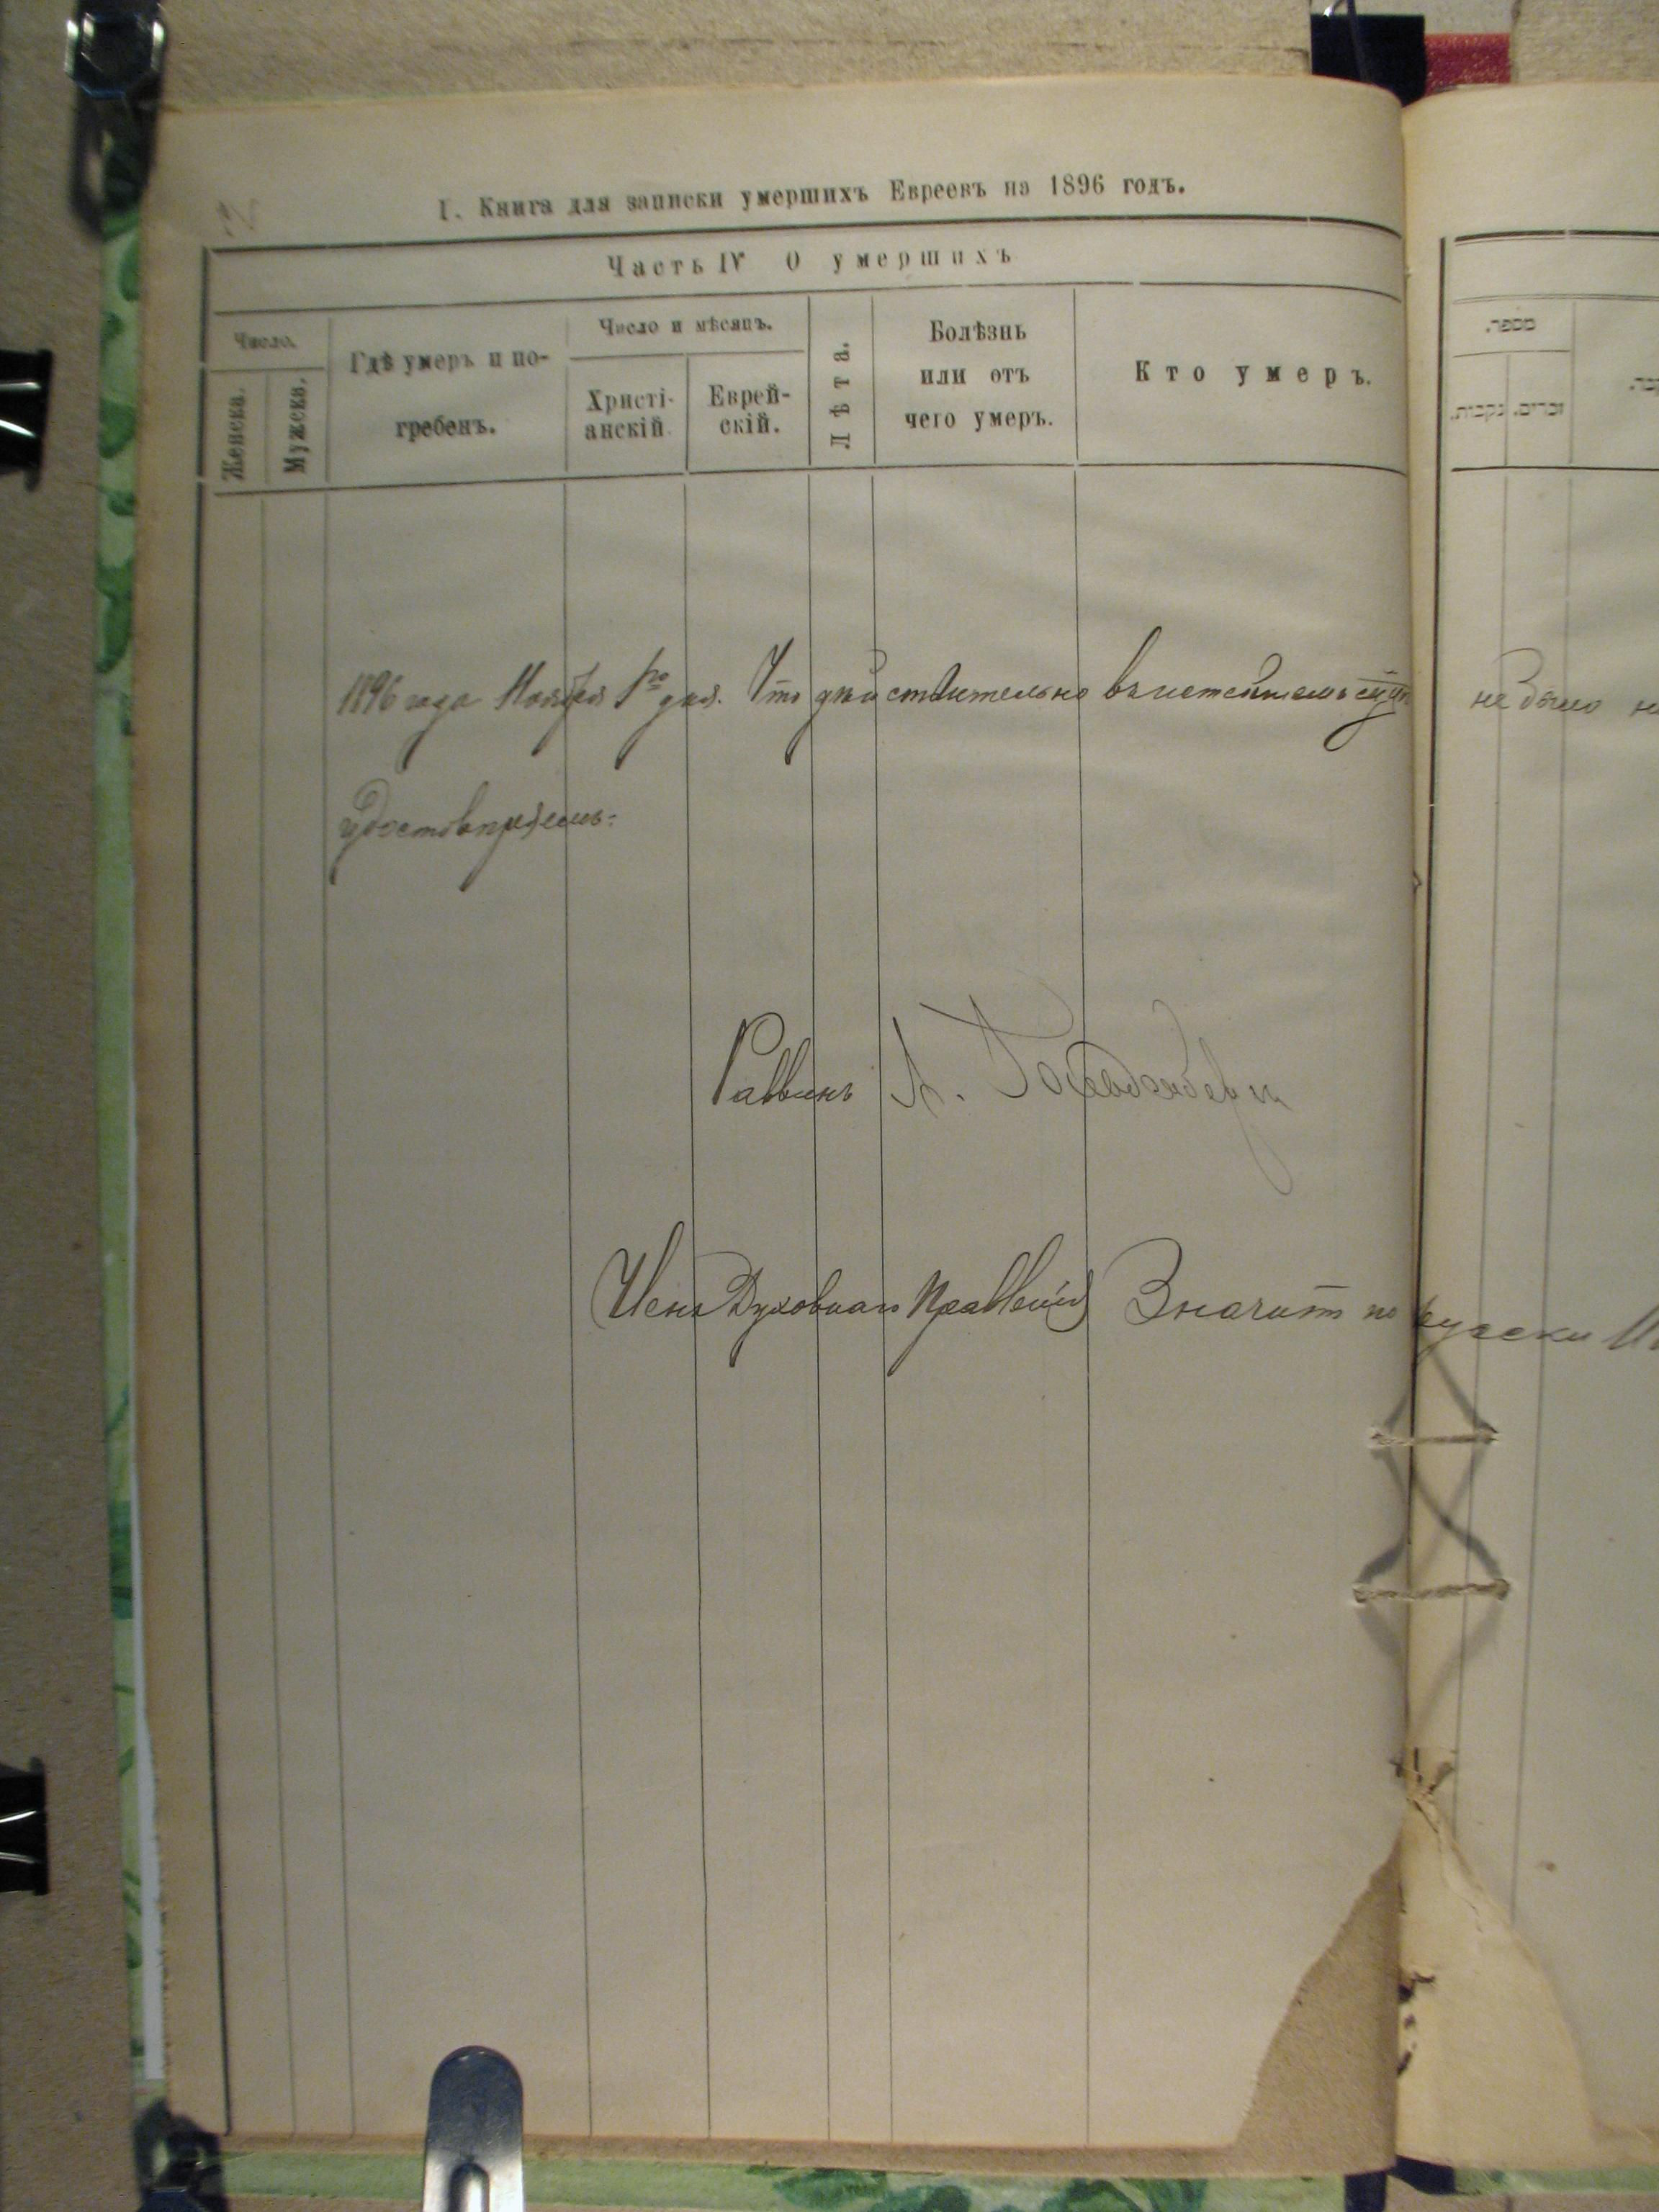 I. Книга для записки умершихъ Евреевъ на 1896 годъ.
Часть IV О умершихъ
Число.
Женска.
Мужеска.
Гдѣ умеръ и по-
гребенъ.
Число и мѣсяцъ.
Христі-
анскій
Еврей-
скій.
Лѣта.
Болѣзнь
или отъ
чего умеръ.
Кто умеръ.
מספר.
נקבות.
זכרים.
1896 года Ноября 1го дня. Что действительно въ истекшемъ не было
удостовѣряемъ:
Раввинъ А.
Членъ Духовнаго Правленія Значитъ по русски